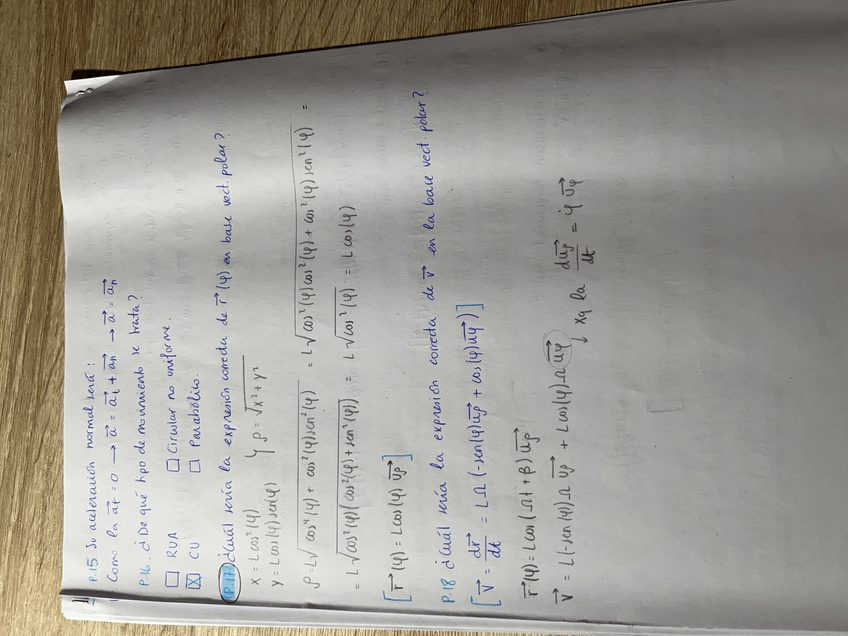 P.15 Su aceleración normal será:
Como la a⃗t = 0 → a⃗ = a⃗t + a⃗n → a⃗ = a⃗n
P.16. ¿De qué tipo de movimiento se trata?
☐ RUA ☐ Circular no uniforme.
☒ CU ☐ Parabólico.
P.17 ¿Cuál sería la expresión correcta de r⃗(φ) en base vect. polar?
x = L cos²(φ)
y = L cos(φ) sen(φ) } ρ = √(x² + y²)
ρ = L√(cos⁴(φ) + cos²(φ) sen²(φ)) = L√(cos²(φ) cos²(φ) + cos²(φ) sen²(φ)) =
= L√(cos²(φ)(cos²(φ) + sen²(φ))) = L√(cos²(φ)) = L cos(φ)
[r⃗(φ) = L cos(φ) u⃗ρ]
P.18 ¿Cuál sería la expresión correcta de v⃗ en la base vect. polar?
[v⃗ = dr⃗/dt = LΩ(-sen(φ) u⃗ρ + cos(φ) u⃗φ)]
r⃗(φ) = L cos(Ωt + β) u⃗ρ
v⃗ = L(-sen(φ))Ω u⃗ρ + L cos(φ)Ω u⃗φ
↓ xq la du⃗ρ/dt = φ̇ u⃗φ